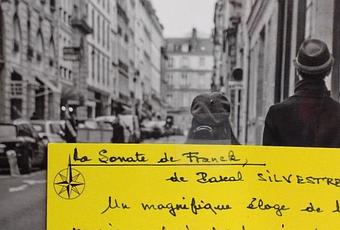 La Sonate de Franck,
de Pascal SILVESTRE
Un magnifique éloge de l